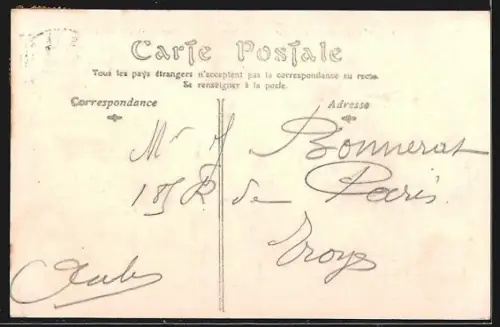 Carte Postale
Tous les pays étrangers n'acceptent pas la correspondance au recto.
Se renseigner à la poste.
Correspondance
Adresse
Mr J Bonnerat
185 R de Paris
Troyes
Aube